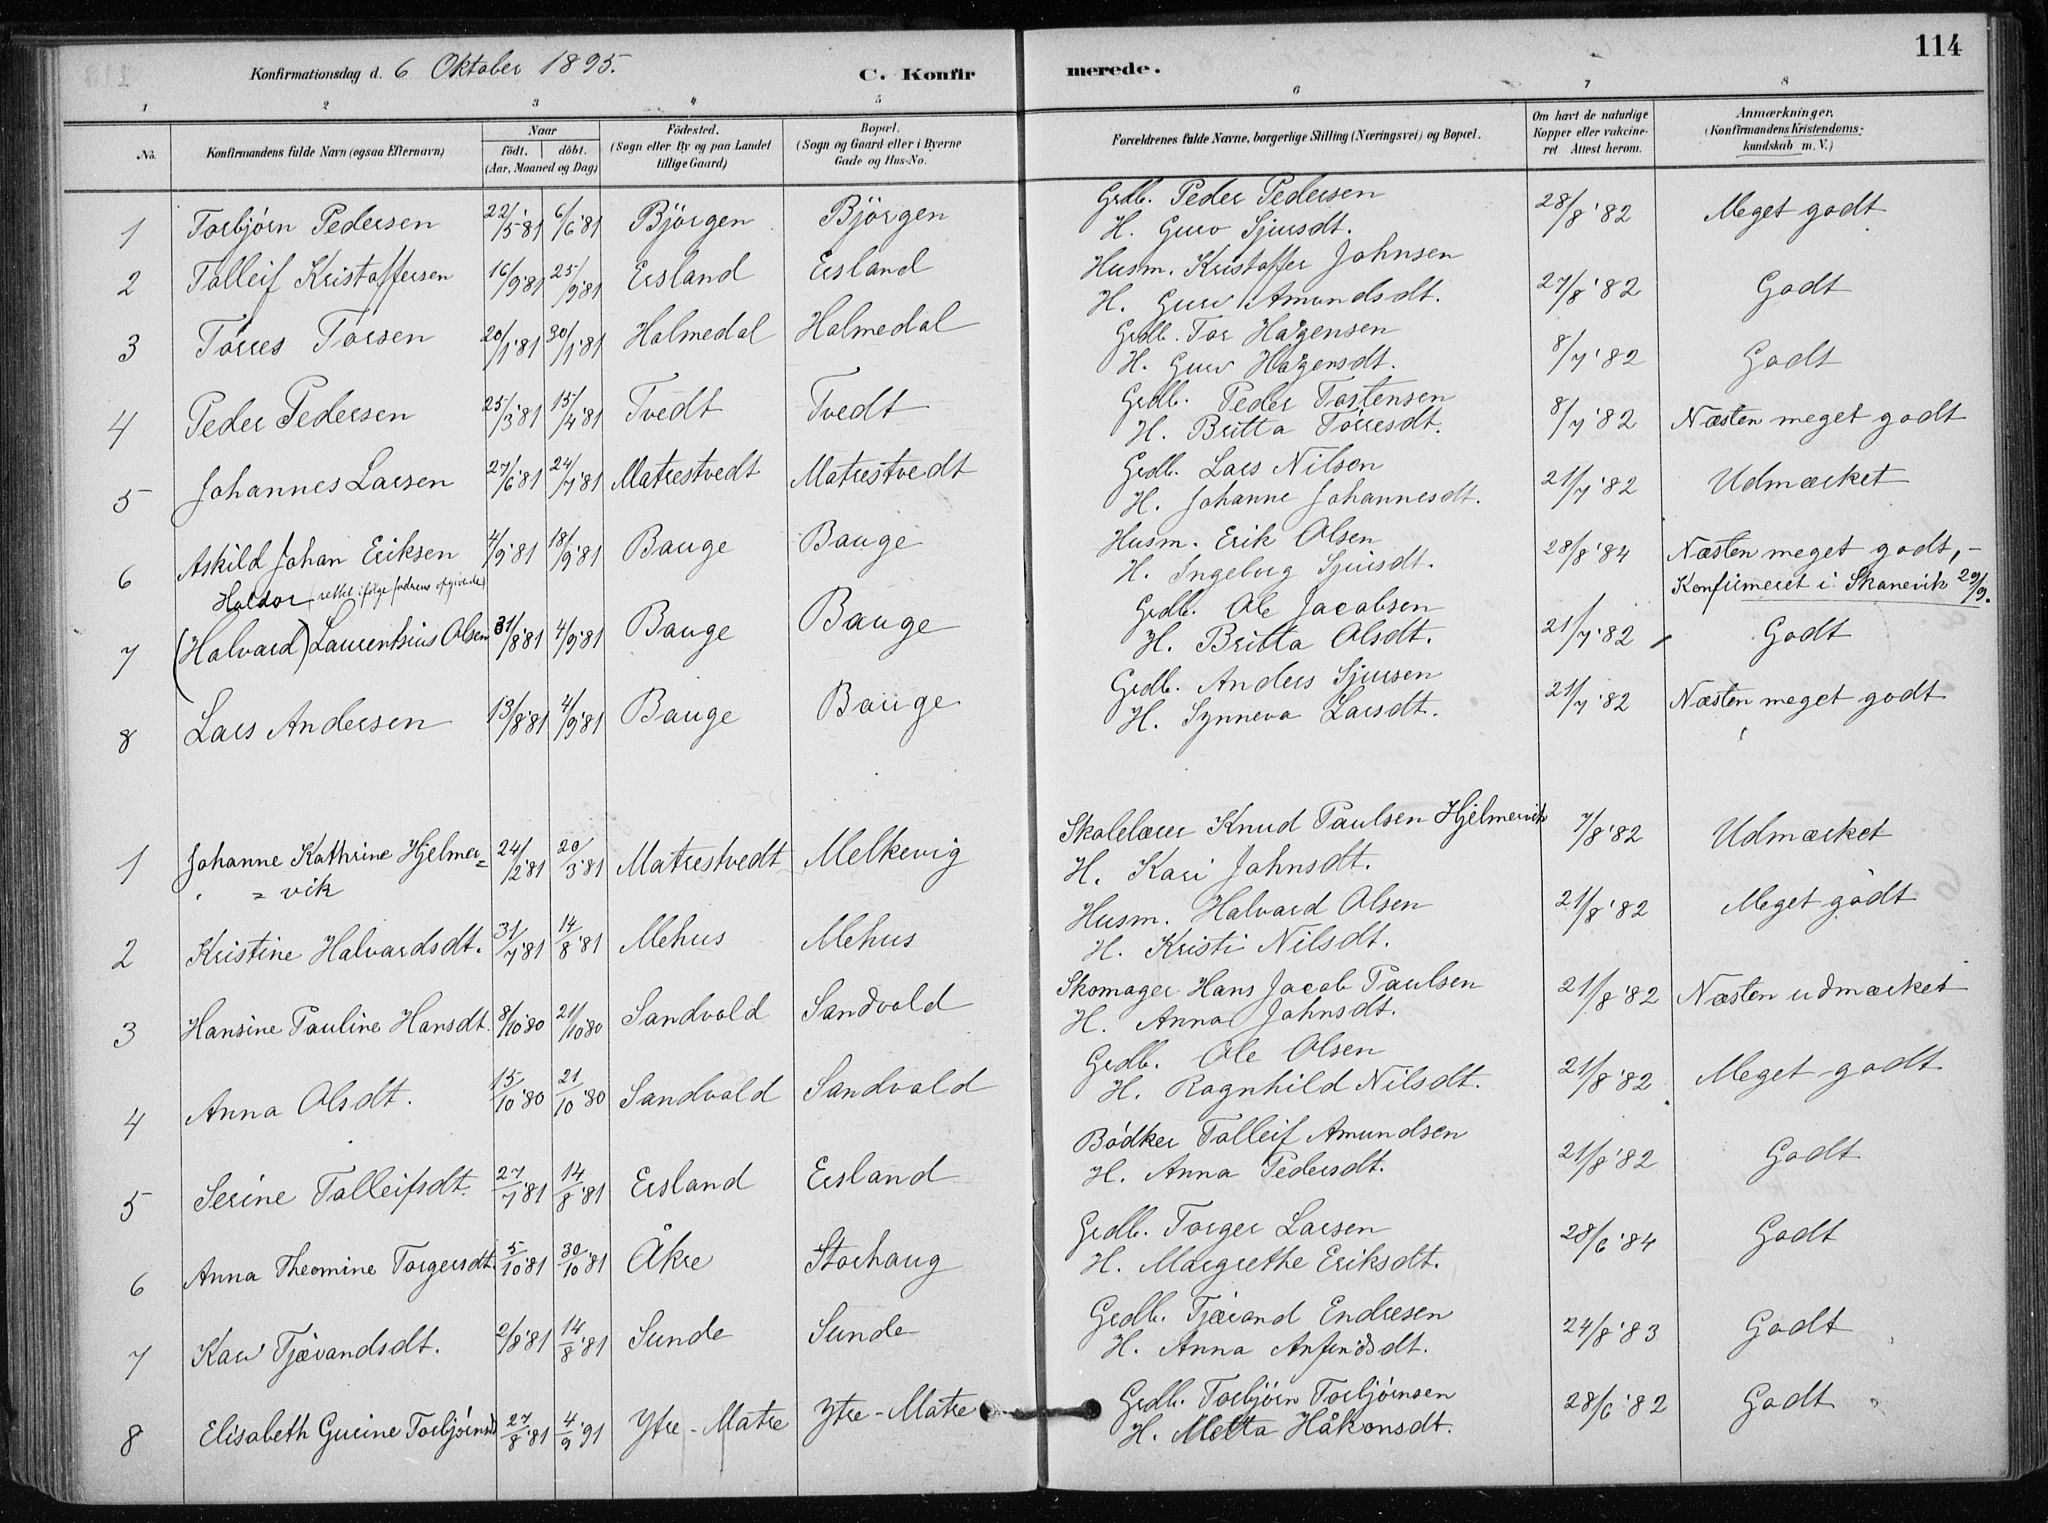 114
Konfirmationsdag d. 6 Oktober 1895. C. Konfirmerede.
1 2 3 4 5 6 7 8
No. Konfirmandens fulde Navn (ogsaa Efternavn) Naar Födt. döbt. (Aar, Maaned og Dag) Födested. (Sogn eller By og paa Landet tillige Gaard) Bopæl. (Sogn og Gaard eller i Byerne Gade og Hus-No. Forældrenes fulde Navne, borgerlige Stilling (Næringsvei) og Bopæl. Om havt de naturlige Kopper eller vakcineret Attest herom. Anmærkninger, (Konfirmandens Kristendomskundskab m. V.)
1 Torbjørn Pedersen 22/5 '81 6/6 '81 Bjørgen Bjørgen Grdb. Peder Pedersen 28/8 '82 Meget godt
H. Guro Sjursdt.
2 Tolleif Kristoffersen 16/9 '81 25/9 '81 Ersland Ersland Husm. Kristoffer Johnsen 27/8 '82 Godt
H. Guro Amundsdt.
3 Tørres Torsen 20/1 '81 30/1 '81 Holmedal Holmedal Grdb. Tor Hagensen 8/7 '82 Godt
H. Guro Hagensdt.
4 Peder Pedersen 25/3 '81 15/4 '81 Tvedt Tvedt Grdb. Peder Tostensen 8/7 '82 Næsten meget godt
H. Britta Tørresdt.
5 Johannes Larsen 27/6 '81 24/7 '81 Matrestvedt Matrestvedt Grdb. Lars Nilsen 21/7 '82 Udmærket
H. Johanne Johannesdt.
6 Askild Johan Eriksen 4/9 '81 18/9 '81 Bauge Bauge Husm. Erik Olsen 28/8 '84 Næsten meget godt, -
H. Ingeborg Sjursdt. Konfirmeret i Skånevik 29/9.
Haldor (rettet i følge faderens opgivende)
7 (Halvard) Laurentsius Olsen 31/8 '81 4/9 '81 Bauge Bauge Grdb. Ole Jacobsen 21/7 '82 Godt
H. Britta Olsdt.
8 Lars Andersen 13/8 '81 4/9 '81 Bauge Bauge Grdb. Anders Sjursen 21/7 '82 Næsten meget godt
H. Synneva Larsdt.
1 Johanne Kathrine Hjelmer= 24/2 '81 20/3 '81 Matrestvedt Melkevig Skolelærer Knud Paulsen Hjelmervik 7/8 '82 Udmærket
= vik H. Kari Johnsdt.
2 Kristine Halvardsdt. 31/7 '81 14/8 '81 Mehus Mehus Husm. Halvard Olsen 21/8 '82 Meget godt
H. Kristi Nilsdt.
3 Hansine Pauline Hansdt. 8/10 '80 21/10 '80 Sandvold Sandvold Skomager Hans Jacob Paulsen 21/8 '82 Næsten udmærket
H. Anna Johnsdt.
4 Anna Olsdt. 15/10 '80 21/10 '80 Sandvold Sandvold Grdb. Ole Olsen 21/8 '82 Meget godt
H. Ragnhild Nilsdt.
5 Serine Tolleifsdt. 27/7 '81 14/8 '81 Ersland Ersland Bødker Tolleif Amundsen 21/8 '82 Godt
H. Anna Pedersdt.
6 Anna Theomine Torgersdt. 5/10 '81 30/10 '81 Åkre Storhaug Grdb. Torger Larsen 28/6 '84 Godt
H. Margrethe Eriksdt.
7 Kari Tjærandsdt. 2/8 '81 14/8 '81 Sunde Sunde Grdb. Tjærand Endresen 24/8 '83 Godt
H. Anna Anfindsdt.
8 Elisabeth Gurine Torbjørnsd 27/8 '81 4/9 '91 Ytre-Matre Ytre-Matre Grdb. Torbjørn Torbjørnsen 28/6 '82 Godt
H. Metta Håkonsdt.